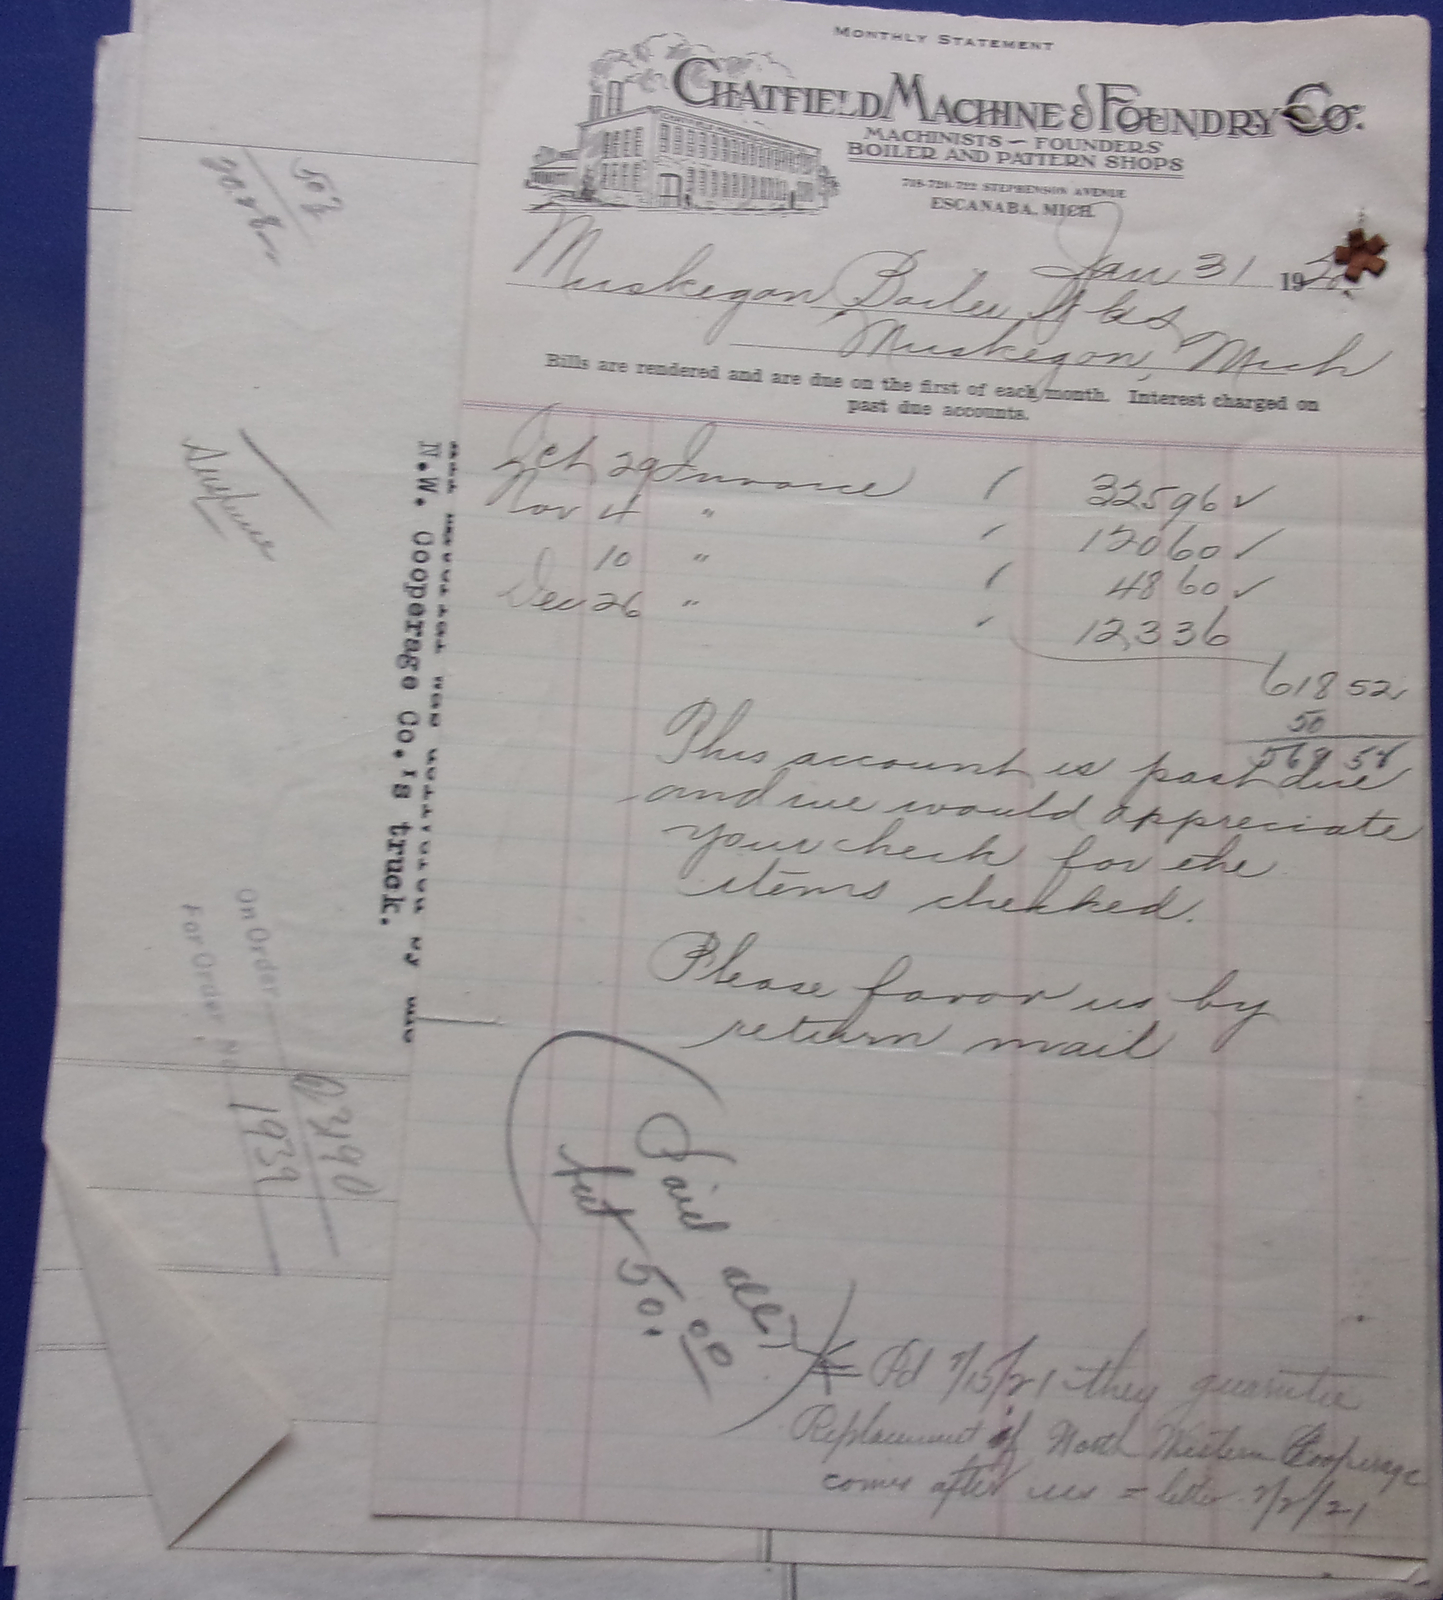 MONTHLY STATEMENT
CHATFIELD MACHINE & FOUNDRY CO.
MACHINISTS - FOUNDERS
BOILER AND PATTERN SHOPS
718-720-722 STEPHENSON AVENUE
ESCANABA, MICH.
Jan 31 19
Muskegon Boiler Wks
Muskegon, Mich
Bills are rendered and are due on the first of each month. Interest charged on
past due accounts.
Oct 29 Invoice 325 96 ✓
Nov 4 " 120 60 ✓
10 " 48 60 ✓
Dec 26 " 123 36
618 52
50
568 52
This account is past due
and we would appreciate
your check for the
items checked.
Please favor us by
return mail
Paid all
but 50.00
Pd 7/15/21 - they guarantee
Replacement of North Western Cooperage
comes after us = letter 7/2/21
N.W. Cooperage Co.'s truck.
On Order
For Order No. 1939